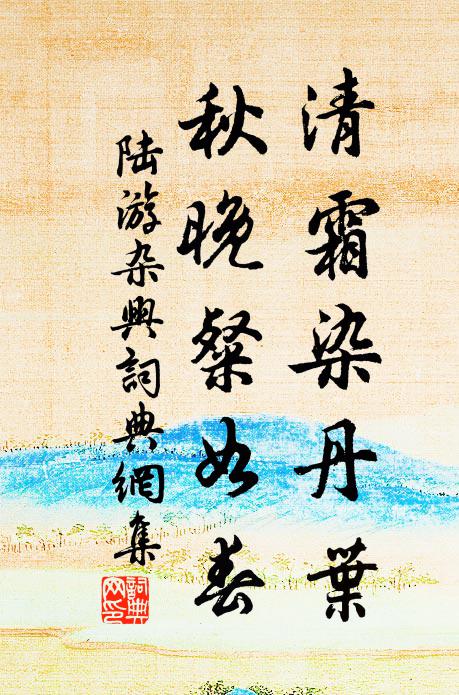 清霜染丹葉
秋晚粲如春
陆游杂興詞典網集
詞典
网印